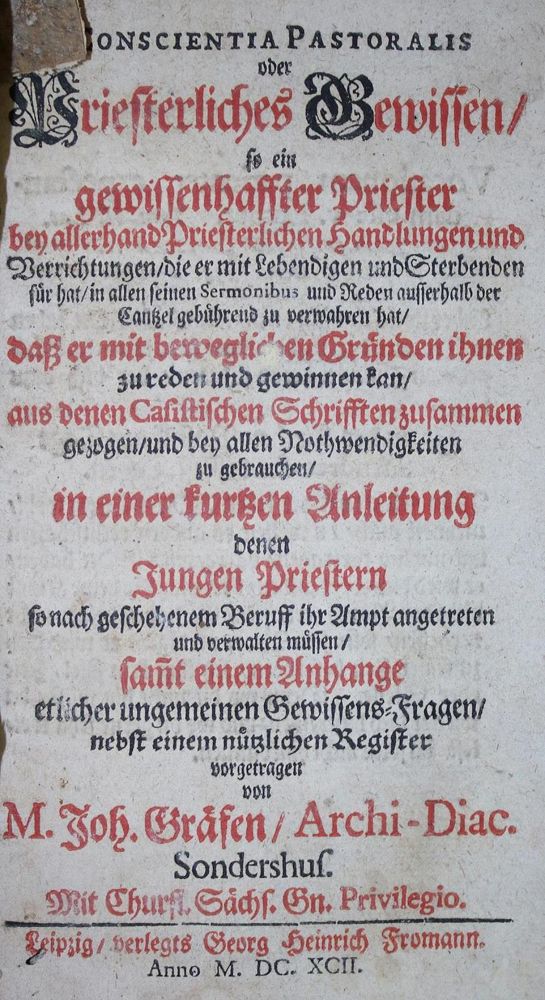 CONSCIENTIA PASTORALIS
oder
Priesterliches Gewissen/
so ein
gewissenhaffter Priester
bey allerhand Priesterlichen Handlungen und
Verrichtungen/die er mit Lebendigen und Sterbenden
für hat/in allen seinen Sermonibus und Reden ausserhalb der
Cantzel gebührend zu verwahren hat/
daß er mit beweglichen Gründen ihnen
zu reden und gewinnen kan/
aus denen Casistischen Schrifften zusammen
gezogen/und bey allen Nothwendigkeiten
zu gebrauchen/
in einer kurtzen Anleitung
denen
Jungen Priestern
so nach geschehenem Beruff ihr Ampt angetreten
und verwalten müssen/
sam̃t einem Anhange
etlicher ungemeinen Gewissens-Fragen/
nebst einem nützlichen Register
vorgetragen
von
M. Joh. Gräfen/ Archi-Diac.
Sondershus.
Mit Churfl. Sächs. Gn. Privilegio.
Leipzig/ verlegts Georg Heinrich Fromann.
Anno M. DC. XCII.